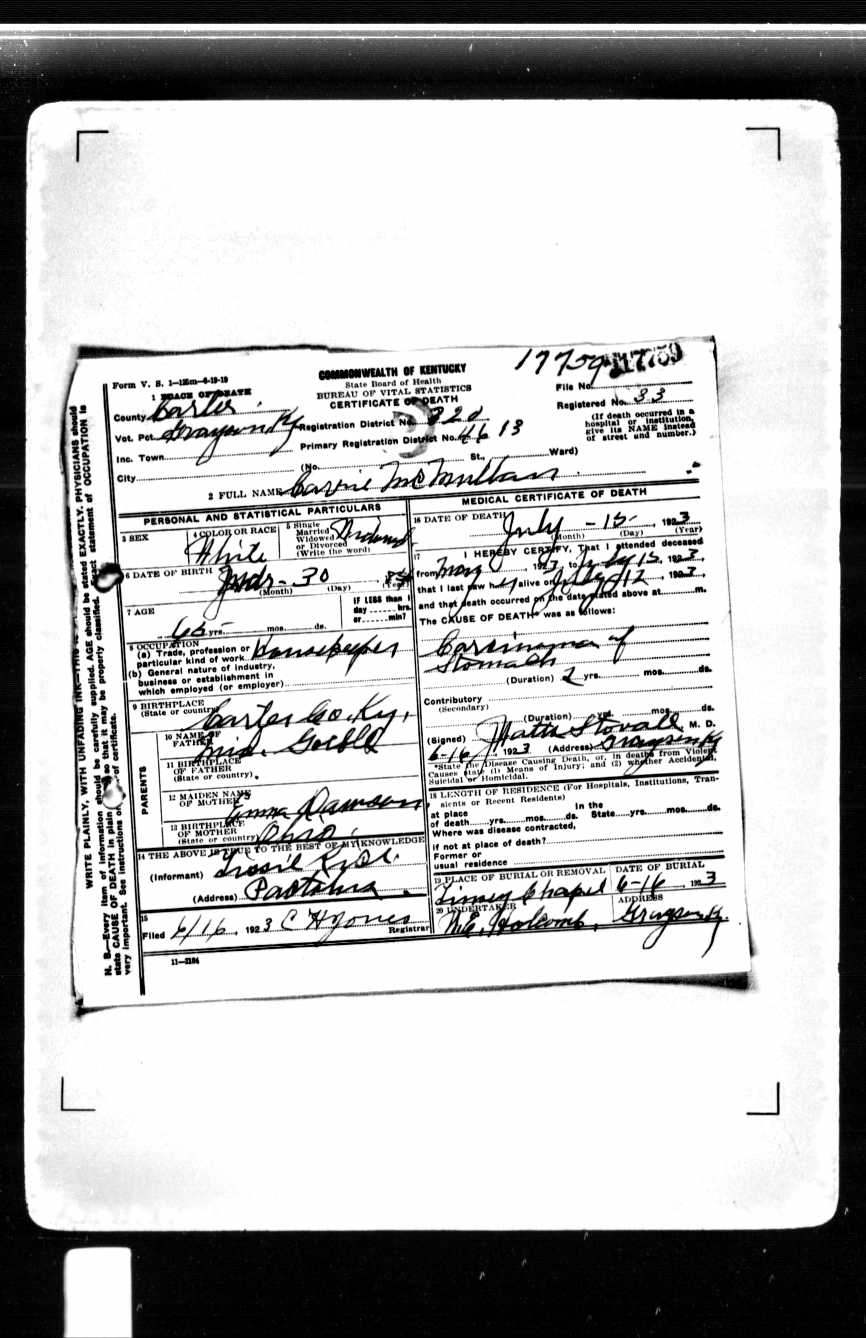 17759 17759
Form V. S. 1—125m—6-19-19
COMMONWEALTH OF KENTUCKY
State Board of Health
BUREAU OF VITAL STATISTICS
CERTIFICATE OF DEATH
File No.
Registered No. 33
(If death occurred in a hospital or institution, give its NAME instead of street and number.)
1 PLACE OF DEATH
County Carter
Vot. Pct. Grayson Ky Registration District No. 320
Inc. Town Primary Registration District No. 4613
City (No. St., Ward)
2 FULL NAME Carrie McMillan
PERSONAL AND STATISTICAL PARTICULARS
3 SEX
4 COLOR OR RACE White
5 Single Married Widowed or Divorced (Write the word) Widowed
6 DATE OF BIRTH Mar- 30
(Month) (Day) (Year)
7 AGE 65 yrs. mos. ds.
IF LESS than 1 day hrs. or min?
8 OCCUPATION
(a) Trade, profession or particular kind of work Housekeeper
(b) General nature of industry, business or establishment in which employed (or employer)
9 BIRTHPLACE (State or country) Carter Co. Ky.
PARENTS
10 NAME OF FATHER Goebld
11 BIRTHPLACE OF FATHER (State or country)
12 MAIDEN NAME OF MOTHER Emma Dawson
13 BIRTHPLACE OF MOTHER (State or country) Ohio
14 THE ABOVE IS TRUE TO THE BEST OF MY KNOWLEDGE
(Informant)
(Address) Pactolus
15
Filed 6/16, 1923 C H Jones Registrar
11—3184
MEDICAL CERTIFICATE OF DEATH
16 DATE OF DEATH July - 15-, 1923
(Month) (Day) (Year)
17 I HEREBY CERTIFY, That I attended deceased
from May 1923, to July 15, 1923,
that I last saw her alive on July 12, 1923,
and that death occurred on the date stated above at m.
The CAUSE OF DEATH* was as follows:
Carcinoma of
Stomach
(Duration) 2 yrs. mos. ds.
Contributory
(Secondary)
(Duration) yrs. mos. ds.
(Signed) Watts Stovall M. D.
6-16, 1923 (Address) Grayson Ky
*State the Disease Causing Death, or, in deaths from Violent Causes state (1) Means of Injury; and (2) whether Accidental, Suicidal or Homicidal.
18 LENGTH OF RESIDENCE (For Hospitals, Institutions, Transients or Recent Residents)
At place of death yrs. mos. ds. In the State yrs. mos. ds.
Where was disease contracted,
if not at place of death?
Former or
usual residence
19 PLACE OF BURIAL OR REMOVAL DATE OF BURIAL
Chapel 6-16 1923
20 UNDERTAKER ADDRESS
Holcomb. Grayson Ky.
WRITE PLAINLY, WITH UNFADING INK—THIS IS
N. B.—Every item of information should be carefully supplied. AGE should be stated EXACTLY. PHYSICIANS should
state CAUSE OF DEATH in plain so that it may be properly classified. Exact statement of OCCUPATION is
very important. See instructions on of certificate.